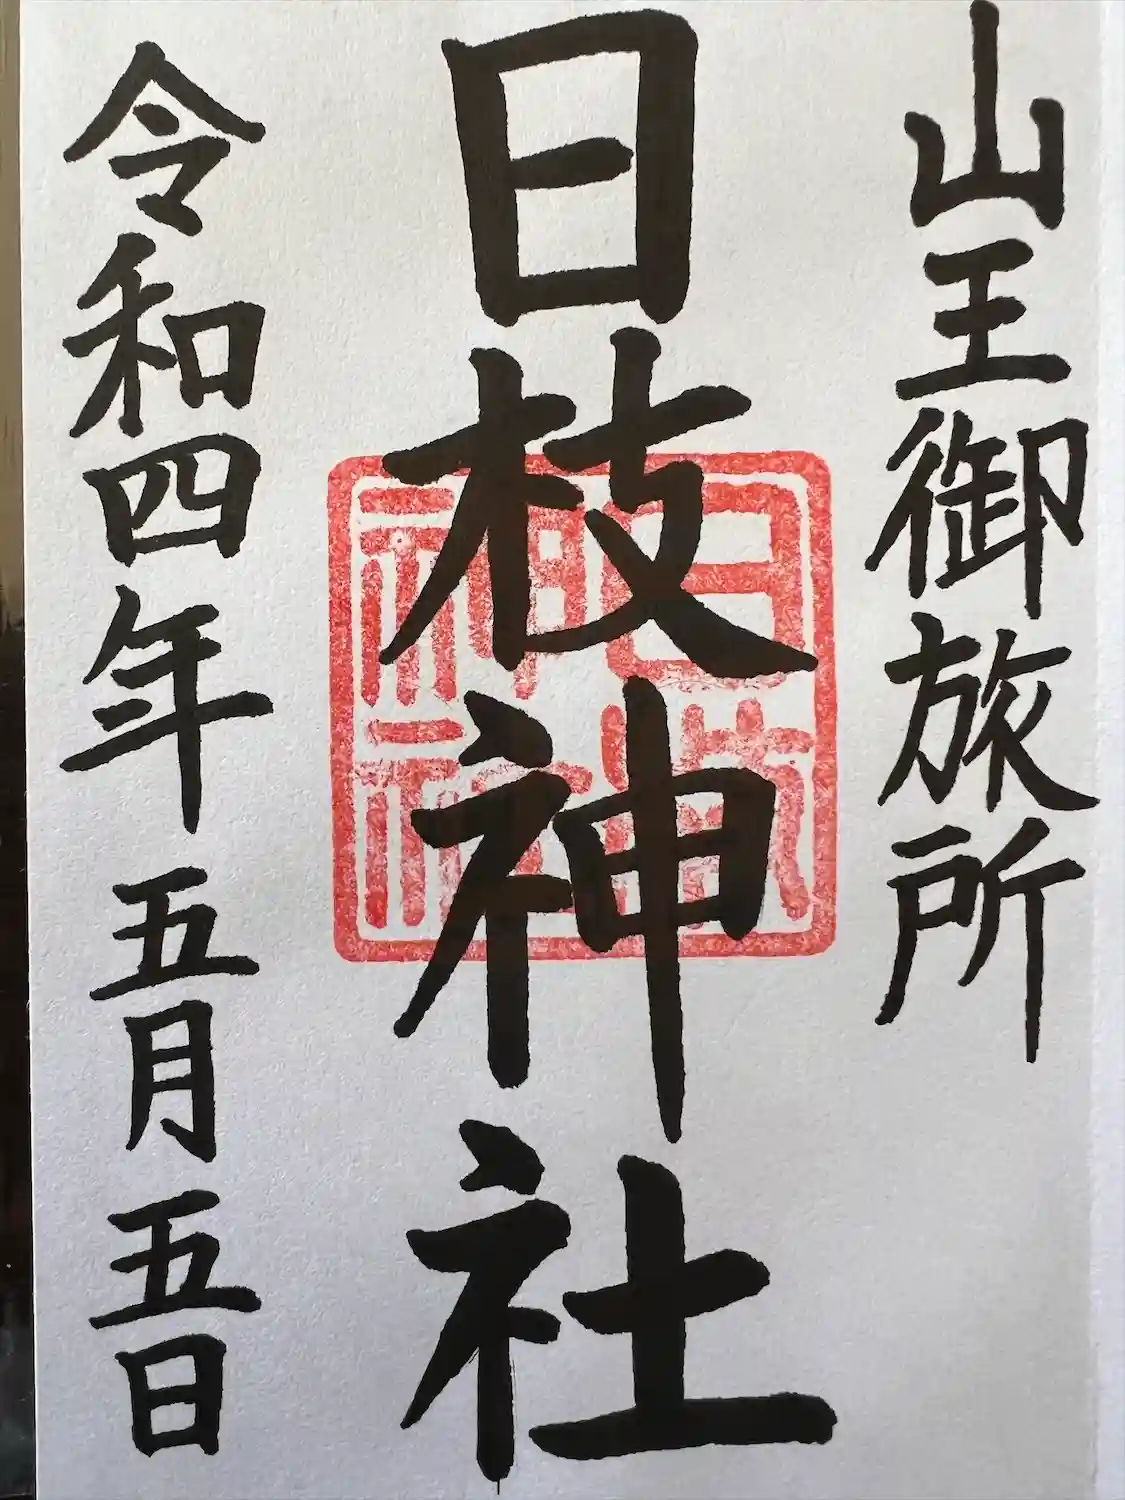 山王御旅所
日枝神社
令和四年五月五日
日枝神社